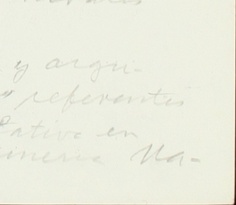 y argu-
" referentes
tativa en
inería Na-